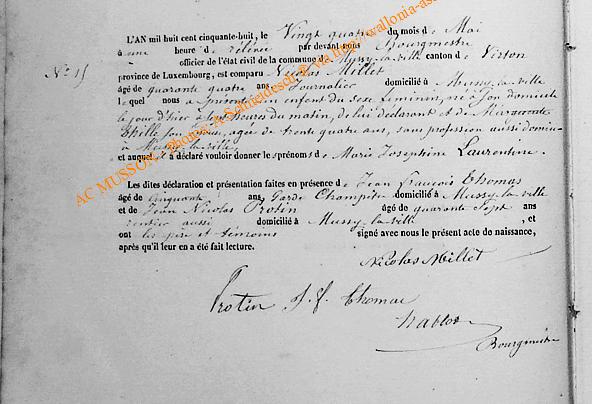 L'AN mil huit cent cinquante-huit, le Vingt quatre du mois de Mai
à une heure de relevée par devant nous Bourgmestre
officier de l'état civil de la commune de Mussy-la-ville canton de Virton
N° 15
province de Luxembourg, est comparu Nicolas Millet
âgé de quarante quatre ans Journalier domicilié à Mussy-la-ville
lequel nous a présenté un enfant du sexe feminin, né en Son domicile
le jour d'hier à heures du matin, de lui déclarant et de Marguerite
Thille son épouse, agée de trente quatre ans, sans profession aussi domiciliée
à Mussy-la-ville
et auquel il a déclaré vouloir donner les prénoms de Marie Josephine Laurentine.
Les dites déclaration et présentation faites en présence de Jean François Thomas
âgé de Cinquante ans Garde Champêtre domicilié à Mussy-la-ville
et de Jean Nicolas Protin âgé de quarante Sept ans
rentier aussi domicilié à Mussy-la-ville , et
ont les père et témoins signé avec nous le présent acte de naissance,
après qu'il leur en a été fait lecture.
Nicolas Millet
Protin J. f. Thomas
Bourgmestre
AC MUSSON - Photos: A Schmideschek, via http://wallonia-as